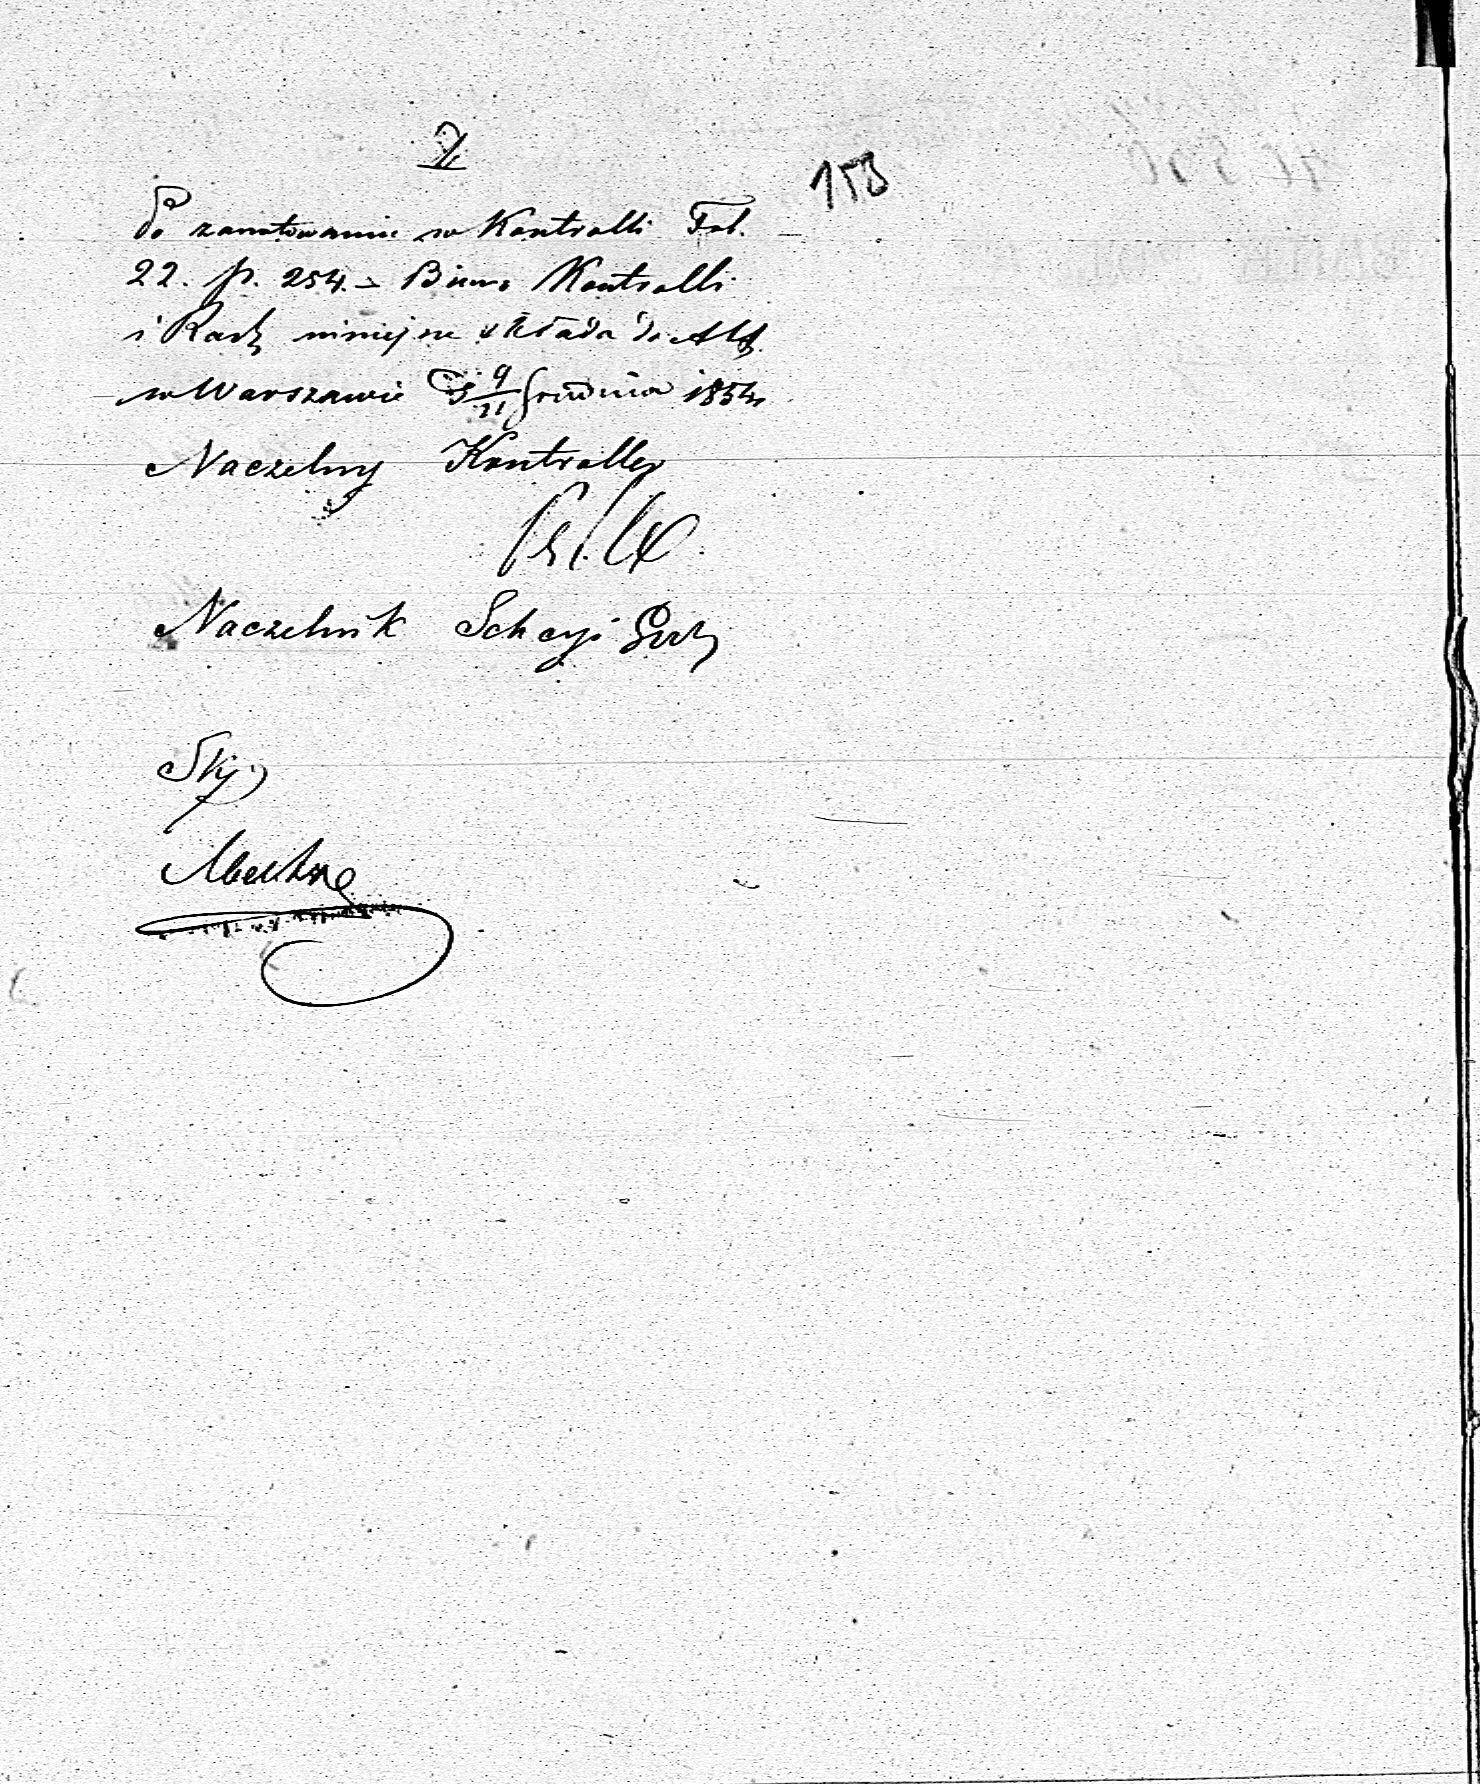 153
Po zanotowaniu w Kontrolli Fol.
22. p. 254. – Biuro Kontrolli
i Rach niniejsze składa do Akt
w Warszawie D 9/21 Grudnia 1854
Naczelny Kontroller
Naczelnik Sekcyi